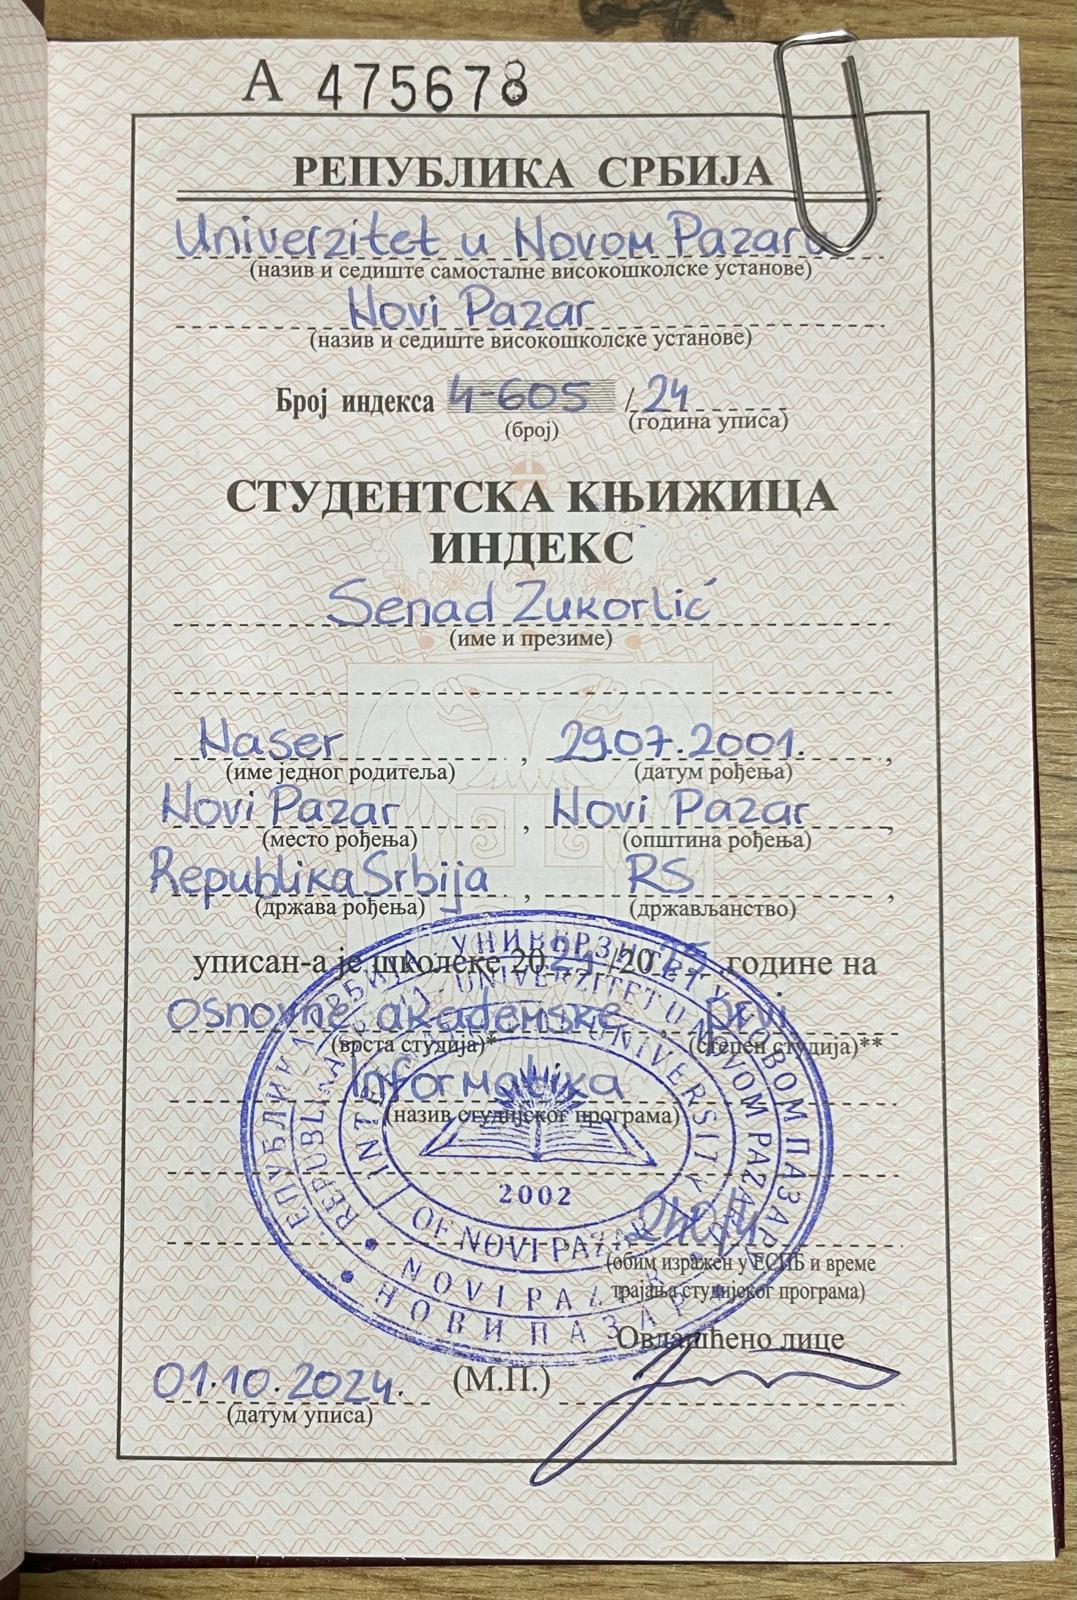 А 475678
РЕПУБЛИКА СРБИЈА
Univerzitet u Novom Pazaru
(назив и седиште самосталне високошколске установе)
Novi Pazar
(назив и седиште високошколске установе)
Број индекса 4-605 / 24
(број) (година уписа)
СТУДЕНТСКА КЊИЖИЦА
ИНДЕКС
Senad Zukorlić
(име и презиме)
Naser , 29.07.2001. ,
(име једног родитеља) (датум рођења)
Novi Pazar , Novi Pazar ,
(место рођења) (општина рођења)
Republika Srbija , RS ,
(држава рођења) (држављанство)
уписан-а је школске 2024/2025 године на
osnovne akademske , prvi
(врста студија)* (степен студија)**
Informatika
(назив студијског програма)
240/4
(обим изражен у ЕСПБ и време
трајања студијског програма)
Овлашћено лице
01.10.2024. (М.П.)
(датум уписа)
УНИВЕРЗИТЕТ У НОВОМ ПАЗАРУ
UNIVERZITET U NOVOM PAZARU
UNIVERSITY
OF NOVI PAZAR
2002
NOVI PAZAR
НОВИ ПАЗАР